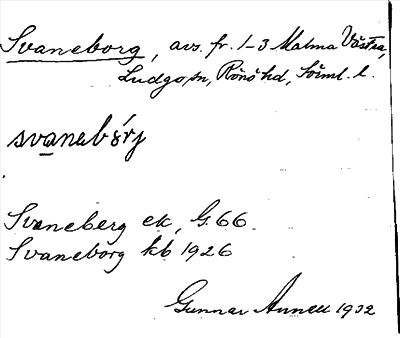 Svaneborg, avs. fr. 1-3 Malma Västra,
Ludgo sn, Rönö hd, Söml. l.
svanebórj
Svaneberg ek, G. 66.
Svaneborg kb 1926
Gunnar Annell 1932